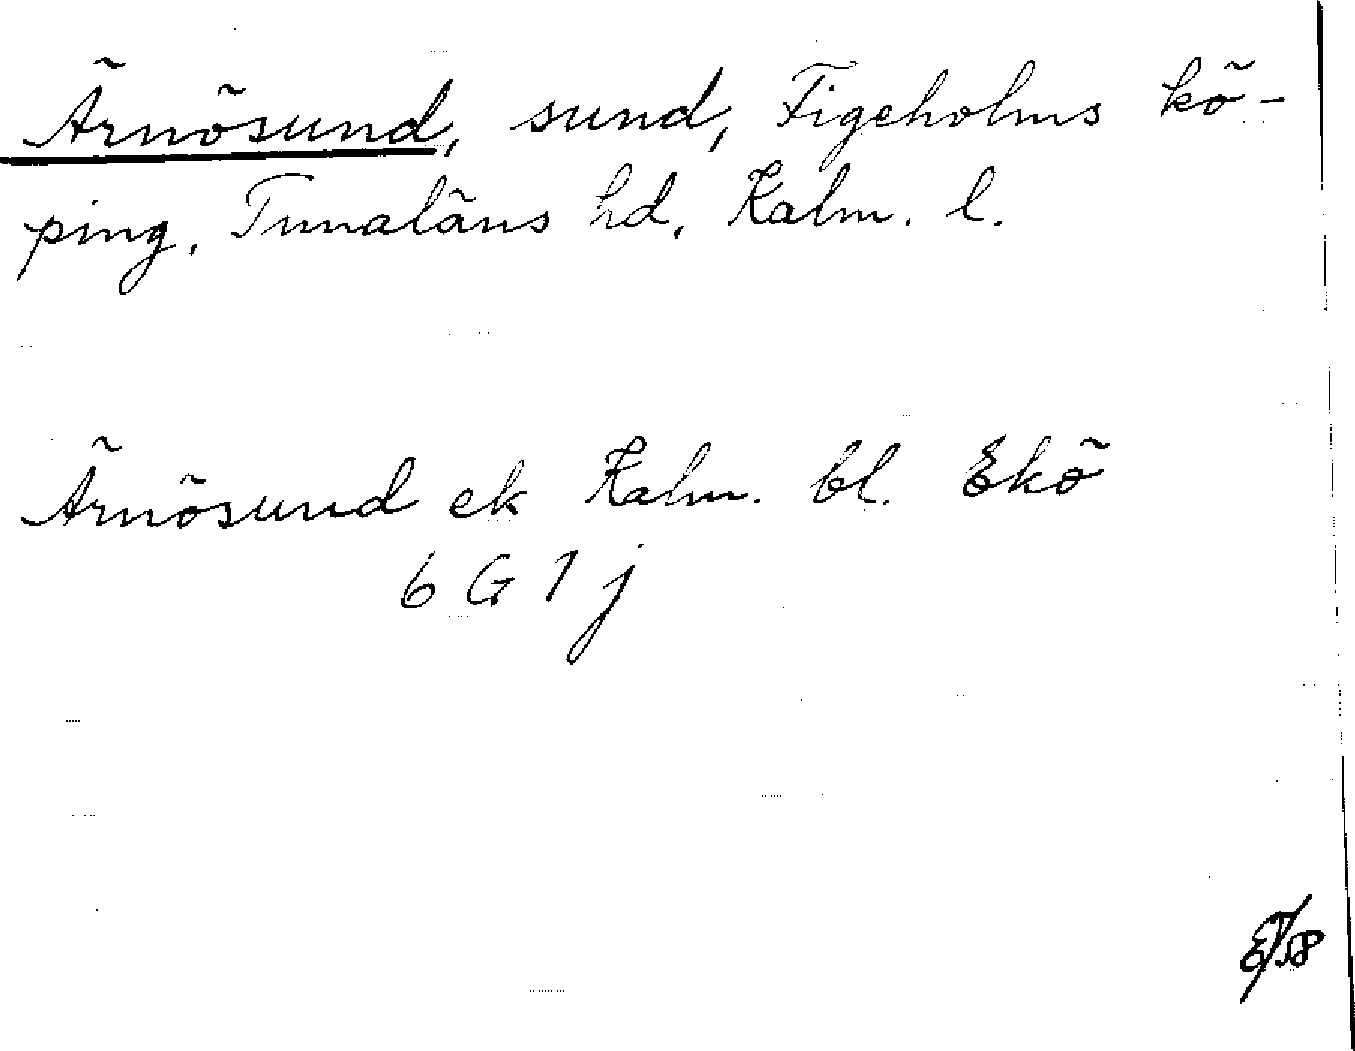 Ärnösund, sund, Figeholms kö-
ping, Tunaläns hd, Kalm. l.
Ärnösund ek Kalm. bl. Ekö
6 G 1 j